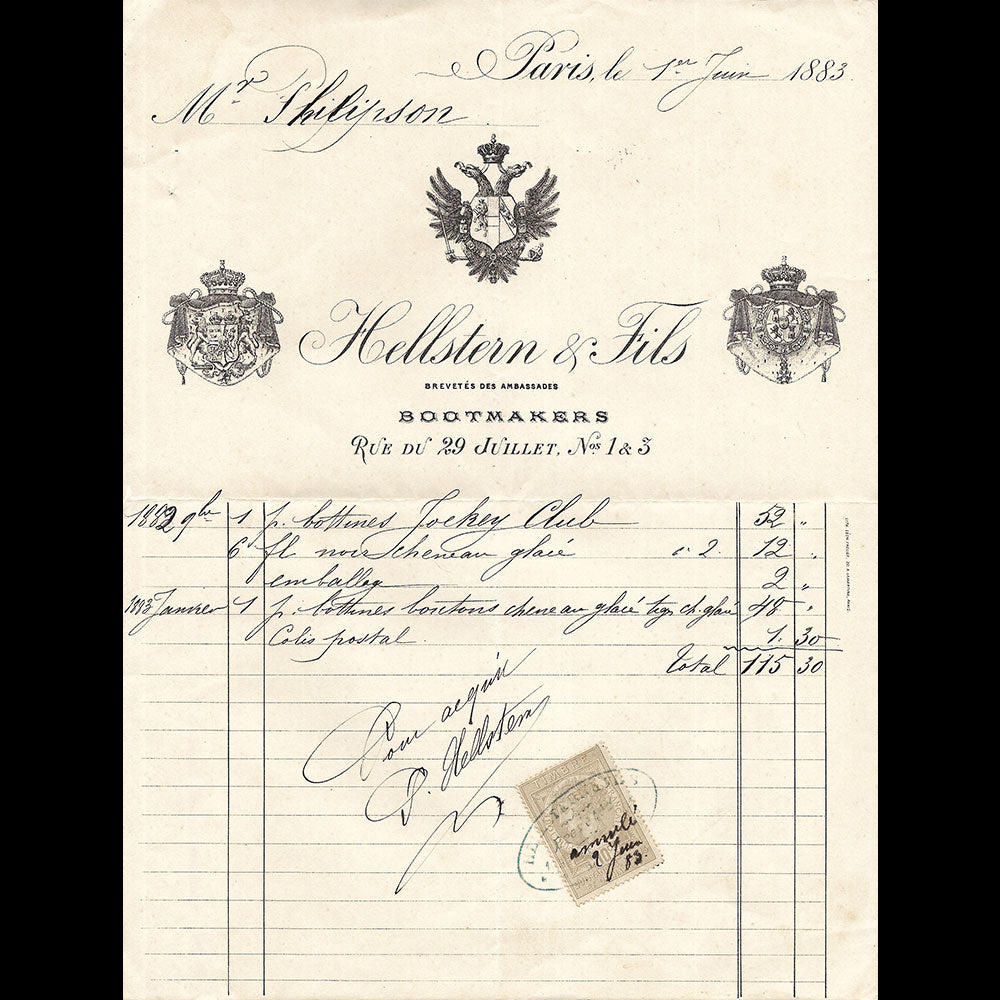 Paris, le 1er Juin 1883.
Mr. Philipson
Hellstern & Fils
BREVETÉS DES AMBASSADES
BOOTMAKERS
RUE DU 29 JUILLET, Nos 1 & 3
1882 9bre 1 p. bottines Jockey Club 52 "
6 fl noir cheveau glacé à 2. 12 "
emballag 2 "
1883 Janvier 1 p. bottines boutons cheveau glacé tiges ch. glacé 48 "
Colis postal. 1. 30
Total 115 30
Pour acquit
Hellstern
TIMBRE
annulé
2 Juin
83.